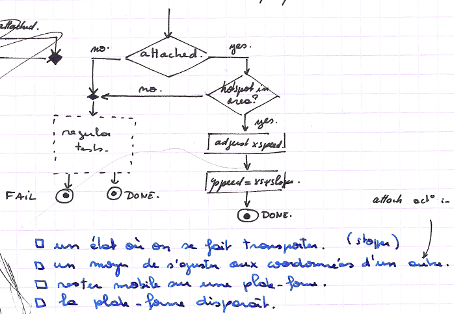 attached.
no.
attached.
yes.
no.
hotspot in
area?
yes.
regular
tests.
adjust xspeed
FAIL
DONE.
DONE.
□ un état où on se fait transporter. (stopper)
□ un moyen de s'ajuster aux coordonnées d'un autre.
□ rester mobile sur une plate-forme.
□ la plate-forme disparaît.